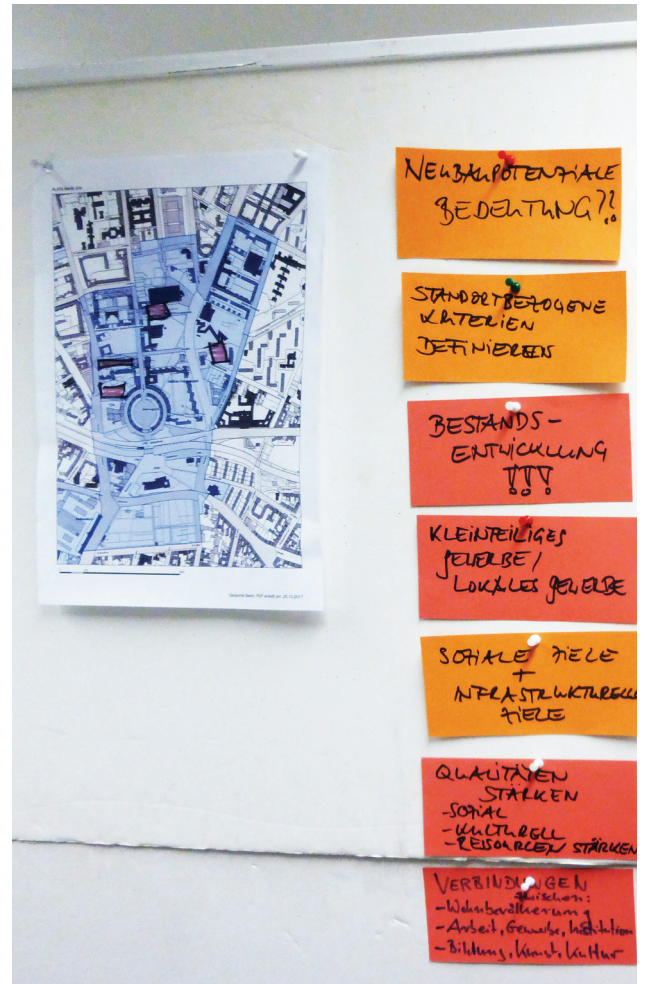 NEUBAUPOTENZIALE
BEDEUTUNG?!
STANDORTBEZOGENE
KRITERIEN
DEFINIEREN
BESTANDS-
ENTWICKLUNG
!!!
KLEINTEILIGES
GEWERBE/
LOKALES GEWERBE
SOZIALE ZIELE
+
INFRASTRUKTURELLE
ZIELE
QUALITÄTEN
STÄRKEN
-SOZIAL
-KULTURELL
-RESSOURCEN STÄRKEN
VERBINDUNGEN
zwischen:
-Wohnbevölkerung
-Arbeit, Gewerbe, Institution
-Bildung, Kunst, Kultur